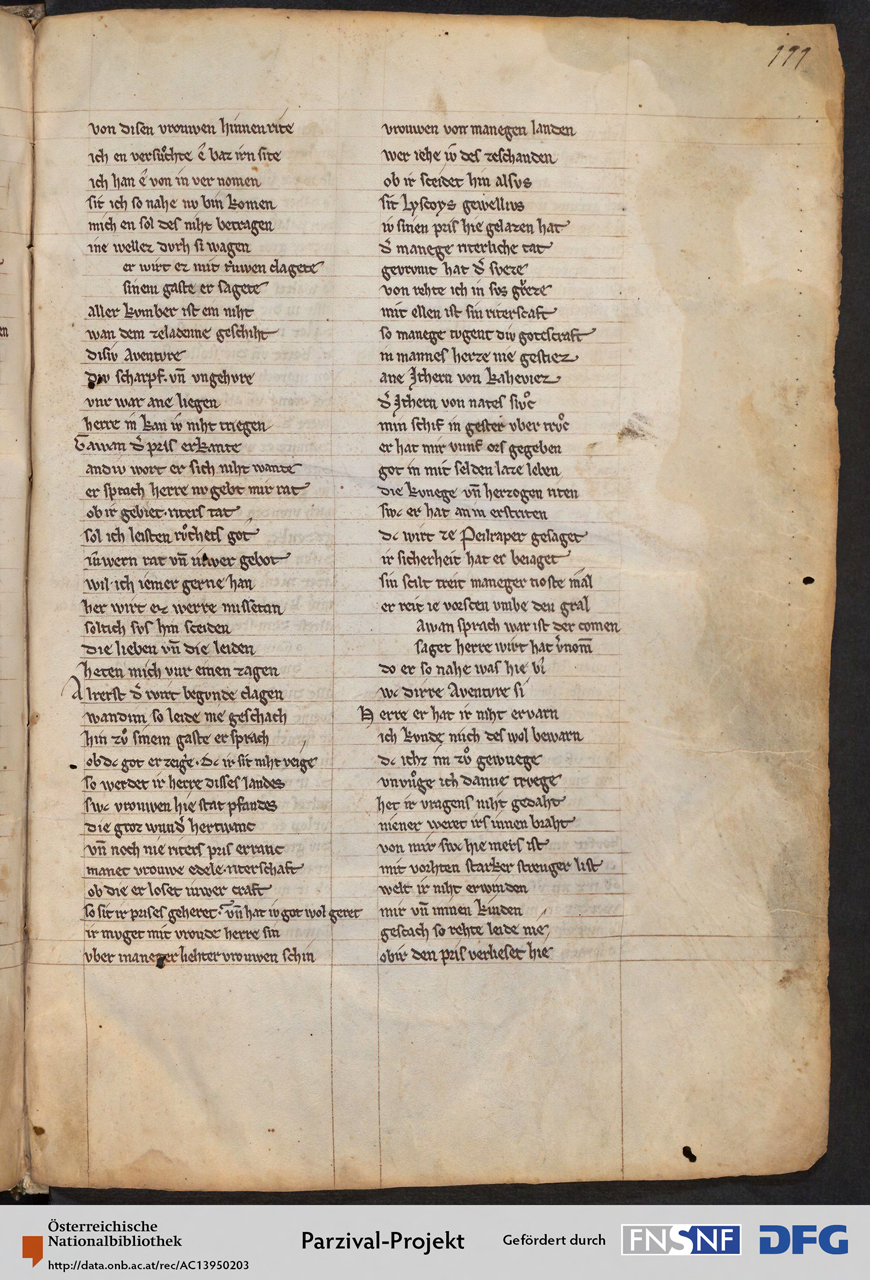 111
von disen vrouwen hinnen rite
ich en versuͦchte ê baz irn site
ich han ê von in ver nomen
sit ich so nahe nv bin komen
mich en sol des niht betragen
ine wellez dvrh si wagen
er wirt ez mit ruwen clagete
sinem gaste er sagete
aller kvmber ist ein niht
wan dem zeladenne geschiht
disiv Aventvre
div scharpf. vn̄ vngehvre
vur war ane liegen
herre in kan iv niht triegen
Gawan d̄ pris erkante
andiv wort er sich niht wante
er sprach herre nv gebt mir rat
ob ir gebiet. riters tat
sol ich leisten rvͦchets got
iwern rat vn̄ iwer gebot
wil ich iemer gerne han
her wirt ez werre missetan
soltich svs hin sceiden
die lieben vn̄ die leiden
heten mich vur einen zagen
Alrerst d̄ wirt begvnde clagen
wandim so leide nie geschach
hin zvͦ sinem gaste er sprach
obdc got erzeige. dc ir sit niht veige
so werdet ir herre disses landes
swc vrouwen hie stat pfandes
die groz wund̄ her twanc
vn̄ noch nie riters pris erranc
manec vrouwe edele. riterschaft
ob die er loset iuwer craft
so sit ir prises geheret. vn̄ hat iv got wol geret
ir mvget mit vrovde herre sin
vber maneger liehter vrouwen schin
vrouwen von manegen landen
wer iehe iv des zeschanden
ob ir sceidet hin alsvs
sit Lyscoys gewellivs
iv sinen pris hie gelazen hat
d̄ manege riterliche tat
gevrvmt hat d̄ sveze
von rehte ich in svs grͮeze
mit ellen ist sin riterscaft
so manege tvgent div gotescraft
in mannes herze nie gestiez
ane Ithern von kaheviez
d̄ Ithern von nates slvͦc
min schif in gester vber trvͦc
er hat mir vunf ors gegeben
got in mit selden laze leben
die kvnege vn̄ herzogen riten
swc er hat an in erstriten
dc wirt ze Peilraper gesaget
ir sicherheit hat er beiaget
sin scilt treit maneger tioste mal
er reit ie vorscen vmbe den gral
Awan sprach war ist der comen
saget herre wirt hat v̄nom̄
do er so nahe was hie bi
wc dirre Aventvre si
Herre er hat ir niht ervarn
ich kvnde mich des wol bewarn
dc ichz im zvͦ gewuege
vnvuͦge ich danne trvege
het ir vragens niht gedaht
niener weret irs innen braht
von mir swc hie mers ist
mit vorhten starker strenger list
welt ir niht erwinden
mir vn̄ minen kinden
gescach so rehte leide nie
obir den pris verlieset hie
Österreichische
Nationalbibliothek
http://data.onb.ac.at/rec/AC13950203
Parzival-Projekt
Gefördert durch
FNSNF
DFG